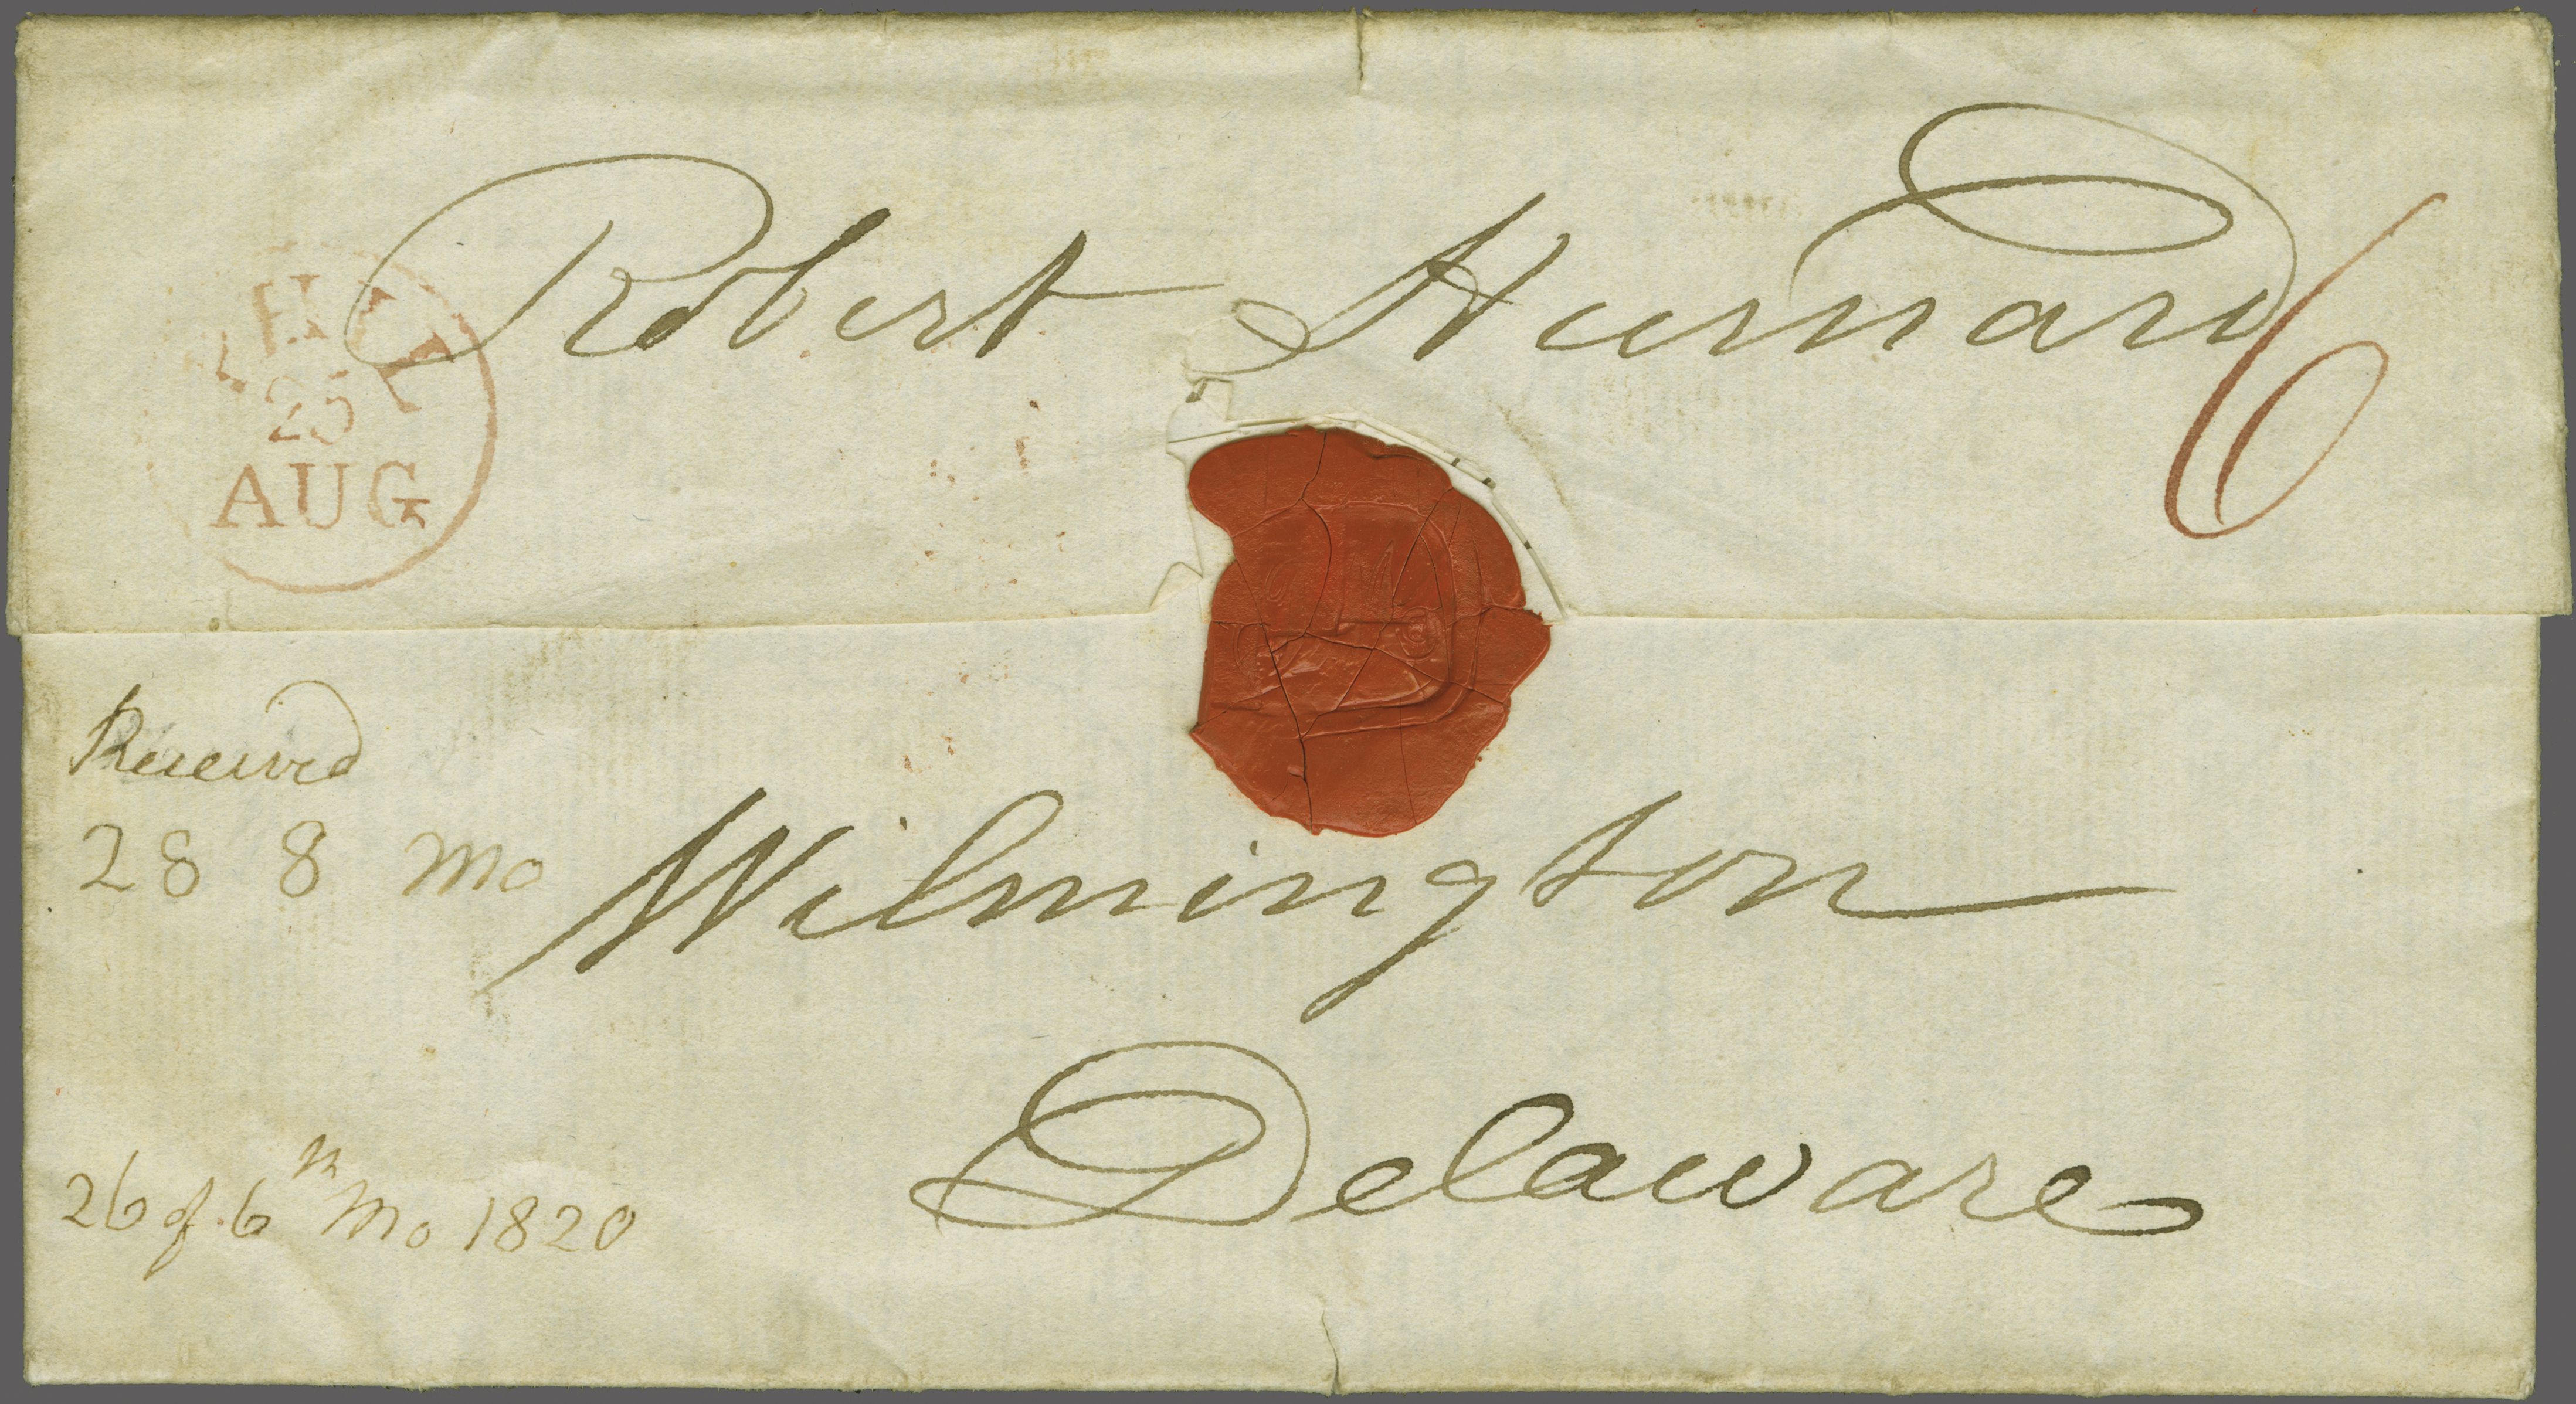 Robert Hurnard
6
PHIL
25
AUG
Received
28 8 mo
Wilmington
Delaware
26 of 6th Mo 1820